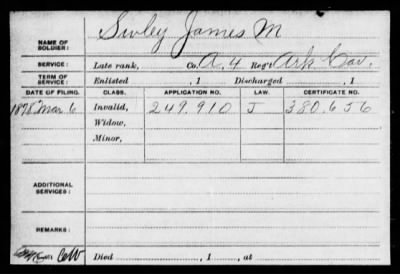 NAME OF SOLDIER: Sivley James M
SERVICE: Late rank, Co. A, 4 Reg't Ark Cav.
TERM OF SERVICE: Enlisted , 1 Discharged , 1
DATE OF FILING. CLASS. APPLICATION NO. LAW. CERTIFICATE NO.
1878 Mar 6 Invalid, 249.910 J 380.656
Widow,
Minor,
ADDITIONAL SERVICES:
REMARKS:
Died , 1 , at